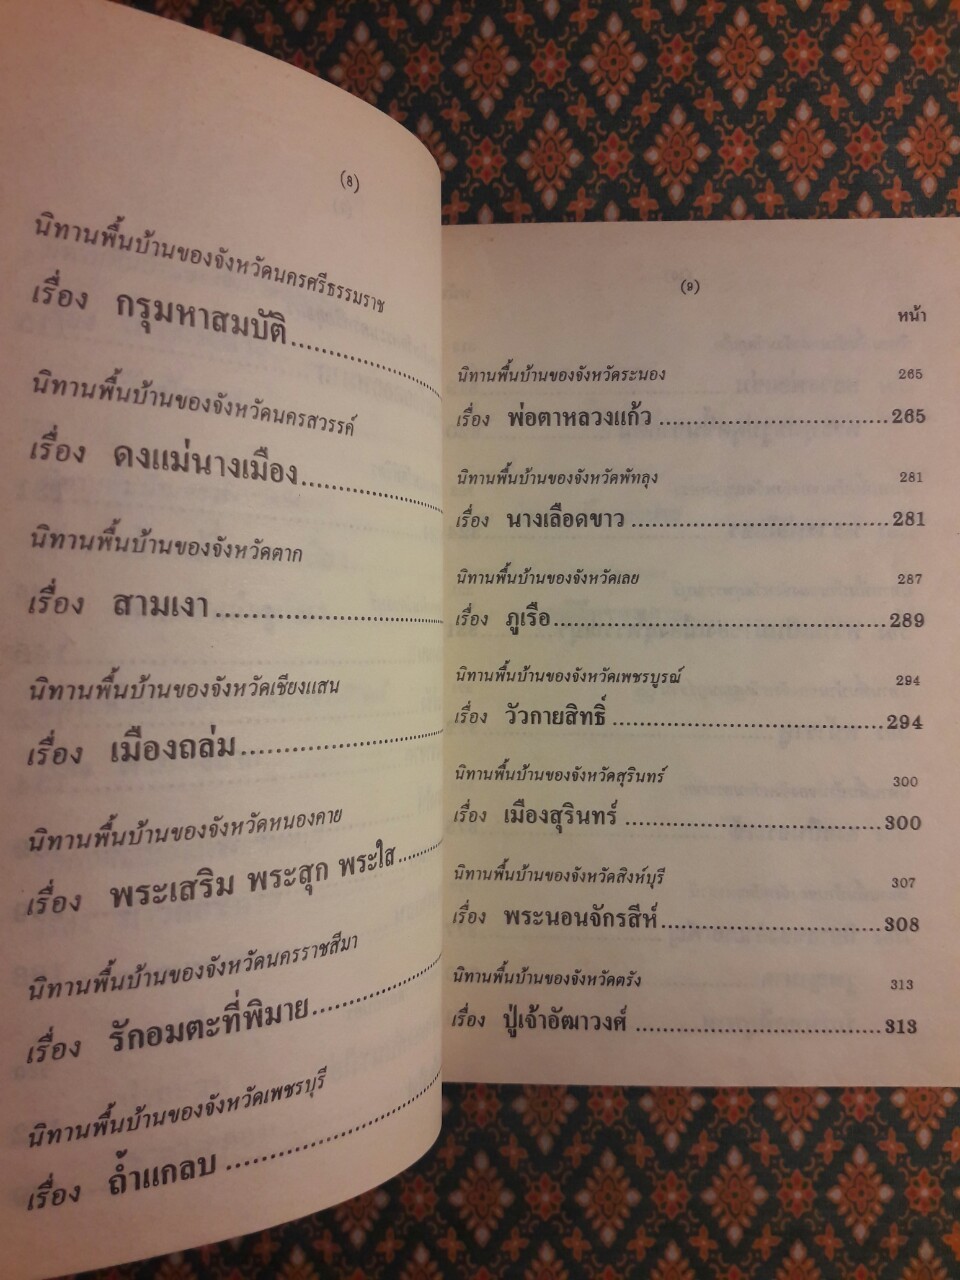 (8)
นิทานพื้นบ้านของจังหวัดนครศรีธรรมราช
เรื่อง กรุมหาสมบัติ
นิทานพื้นบ้านของจังหวัดนครสวรรค์
เรื่อง ดงแม่นางเมือง
นิทานพื้นบ้านของจังหวัดตาก
เรื่อง สามเงา
นิทานพื้นบ้านของจังหวัดเชียงแสน
เรื่อง เมืองถล่ม
นิทานพื้นบ้านของจังหวัดหนองคาย
เรื่อง พระเสริม พระสุก พระใส
นิทานพื้นบ้านของจังหวัดนครราชสีมา
เรื่อง รักอมตะที่พิมาย
นิทานพื้นบ้านของจังหวัดเพชรบุรี
เรื่อง ถ้ำแกลบ
(9)
หน้า
นิทานพื้นบ้านของจังหวัดระนอง 265
เรื่อง พ่อตาหลวงแก้ว 265
นิทานพื้นบ้านของจังหวัดพัทลุง 281
เรื่อง นางเลือดขาว 281
นิทานพื้นบ้านของจังหวัดเลย 287
เรื่อง ภูเรือ 289
นิทานพื้นบ้านของจังหวัดเพชรบูรณ์ 294
เรื่อง วัวกายสิทธิ์ 294
นิทานพื้นบ้านของจังหวัดสุรินทร์ 300
เรื่อง เมืองสุรินทร์ 300
นิทานพื้นบ้านของจังหวัดสิงห์บุรี 307
เรื่อง พระนอนจักรสีห์ 308
นิทานพื้นบ้านของจังหวัดตรัง 313
เรื่อง ปู่เจ้าอัฒาวงศ์ 313